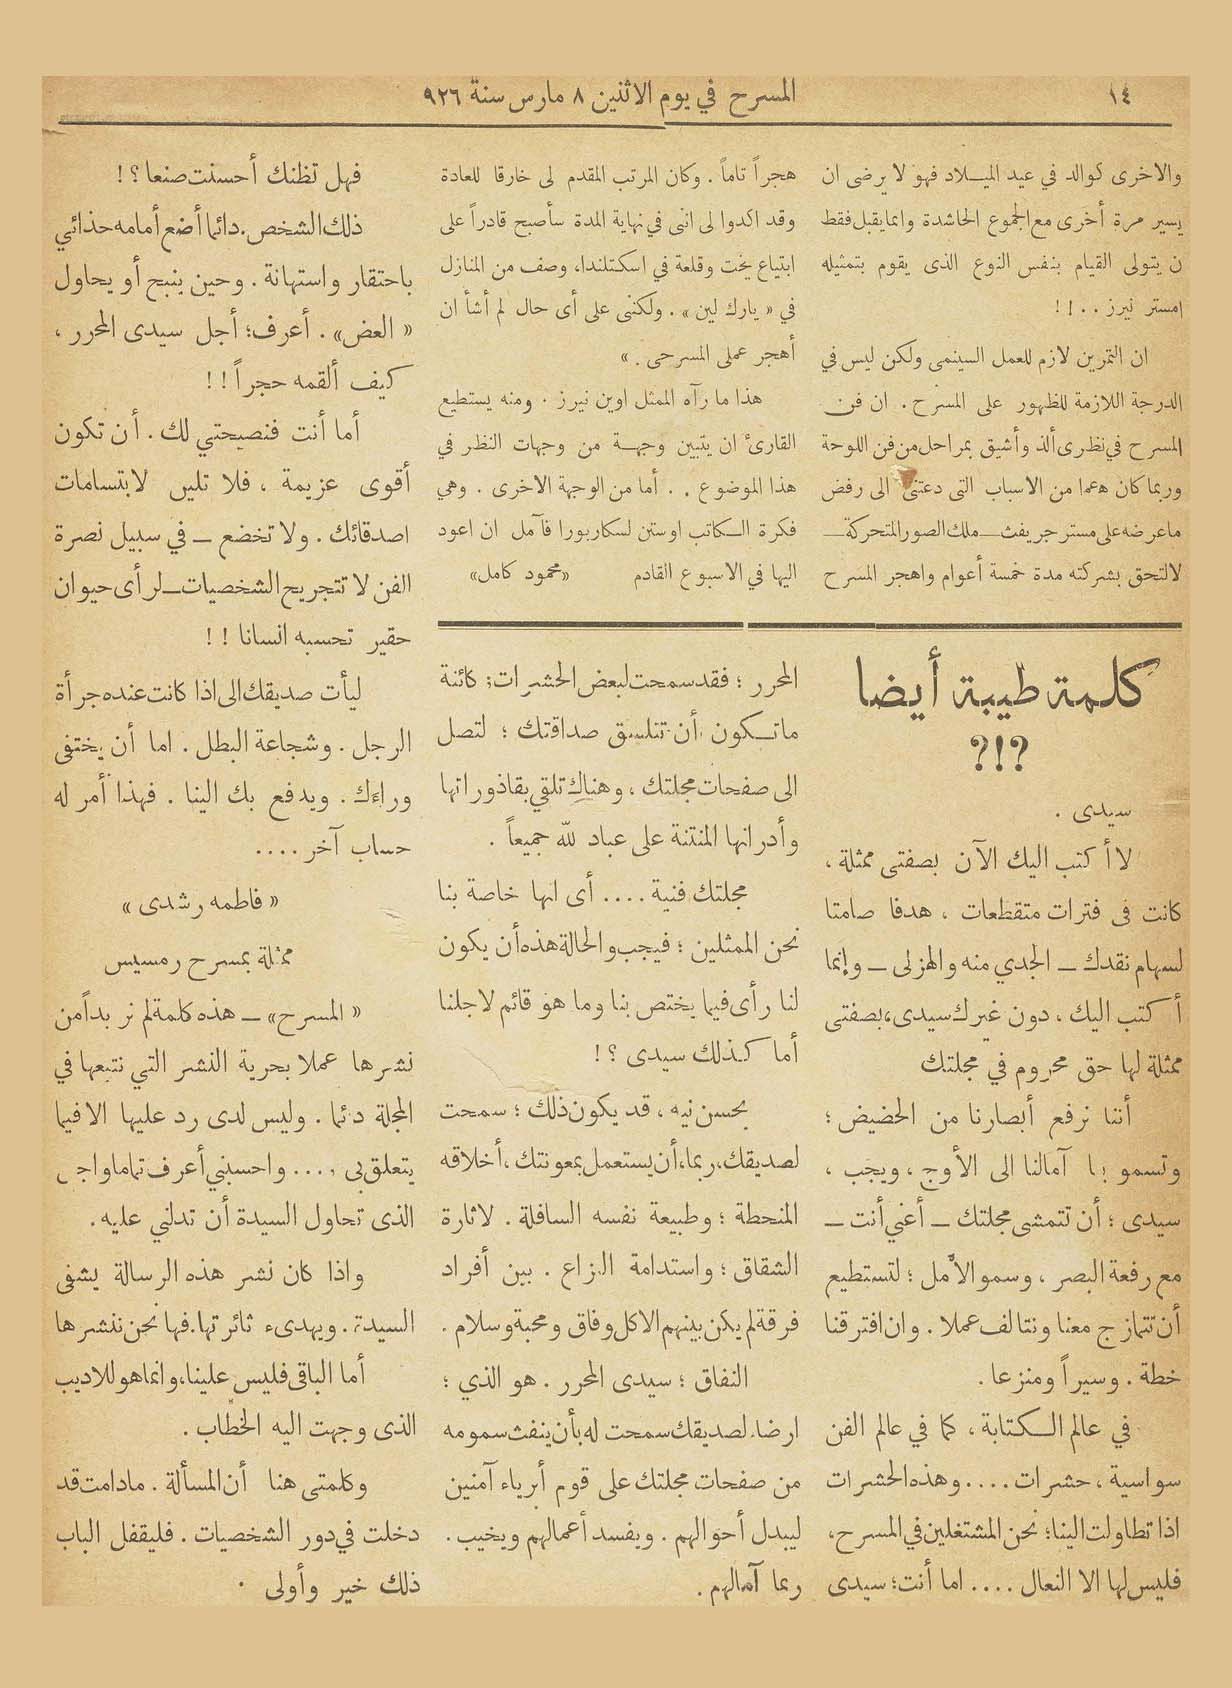 ١٤
المسرح في يوم الاثنين ٨ مارس سنة ٩٢٦
والاخرى كوالد في عيد الميلاد فهو لا يرضى ان
يسير مرة أخرى مع الجموع الحاشدة وانما يقبل فقط
ن يتولى القيام بنفس النوع الذى يقوم بتمثيله
امستر نيرز ..!!
ان التمرين لازم للعمل السينمى ولكن ليس في
الدرجة اللازمة للظهور على المسرح . ان فن
المسرح في نظرى ألذ وأشيق بمراحل من فن اللوحة
وربما كان هما من الاسباب التى دعتنى الى رفض
ماعرضه على مستر جريفث ــ ملك الصور المتحركة ــ
لالتحق بشركته مدة خمسة أعوام واهجر المسرح
هجراً تاماً . وكان المرتب المقدم لى خارقا للعادة
وقد اكدوا لى انى في نهاية المدة سأصبح قادراً على
ابتياع يخت وقلعة في اسكتلندا، وصف من المنازل
في « يارك لين » . ولكنى على أى حال لم أشأ ان
أهجر عملى المسرحى . »
هذا ما رآه الممثل اوين نيرز . ومنه يستطيع
القارئ ان يتبين وجهة من وجهات النظر في
هذا الموضوع . . أما من الوجهة الاخرى . وهي
فكرة الكاتب اوستن لسكاربورا فآمل ان اعود
اليها في الاسبوع القادم «محمود كامل»
كلمة طيبة أيضا
?!?
سيدى .
لا أكتب اليك الآن بصفتى ممثلة ،
كانت فى فترات متقطعات ، هدفا صامتا
لسهام نقدك ــ الجدي منه والهزلى ــ وإنما
أكتب اليك ، دون غيرك سيدى، بصفتى
ممثلة لها حق محروم في مجلتك
أننا نرفع أبصارنا من الحضيض ؛
وتسمو بنا آمالنا الى الأوج ، ويجب ،
سيدى ؛ أن تتمشى مجلتك ــ أعني أنت ــ
مع رفعة البصر ، وسمو الأمل ؛ لتستطيع
أن تتمازج معنا ونتالف عملا . وان افترقنا
خطة . وسيراً ومنزعا .
في عالم الكتابة ، كما في عالم الفن
سواسية ، حشرات .... وهذه الحشرات
اذا تطاولت الينا؛ نحن المشتغلين في المسرح،
فليس لها الا النعال .... اما أنت؛ سيدى
المحرر ؛ فقد سمحت لبعض الحشرات؛ كائنة
ماتكون أن تتلسق صداقتك ؛ لتصل
الى صفحات مجلتك ، وهناك تلقي بقاذوراتها
وأدرانها المنتنة على عباد لله جميعاً .
مجلتك فنية .... أى انها خاصة بنا
نحن الممثلين ؛ فيجب والحالة هذه أن يكون
لنا رأى فيما يختص بنا وما هو قائم لاجلنا
أما كذلك سيدى ؟ !
بحسن نيه ، قد يكون ذلك ؛ سمحت
لصديقك، ربما، أن يستعمل بمعونتك ، أخلاقه
المنحطة ؛ وطبيعة نفسه السافلة . لاثارة
الشقاق ؛ واستدامة النزاع . بين أفراد
فرقة لم يكن بينهم الاكل وفاق ومحبة وسلام .
النفاق ؛ سيدى المحرر . هو الذي ؛
ارضاء لصديقك سمحت له بأن ينفث سمومه
من صفحات مجلتك على قوم أبرياء آمنين
ليبدل أحوالهم . ويفسد أعمالهم ويخيب .
ربما آمالهم .
فهل تظنك أحسنت صنعا ؟ !
ذلك الشخص . دائما أضع أمامه حذائي
باحتقار واستهانة . وحين ينبح أو يحاول
« العض» . أعرف؛ أجل سيدى المحرر ،
كيف ألقمه حجراً ! !
أما أنت فنصيحتي لك . أن تكون
أقوى عزيمة ، فلا تلين لابتسامات
اصدقائك . ولا تخضع ــ في سبيل نصرة
الفن لا تتجريح الشخصيات ــ لرأى حيوان
حقير تحسبه انسانا ! !
ليأت صديقك الى اذا كانت عنده جرأة
الرجل . وشجاعة البطل . اما أن يختفى
وراءك . ويدفع بك الينا . فهذا أمر له
حساب آخر ....
« فاطمه رشدى »
ممثلة بمسرح رمسيس
« المسرح» ــ هذه كلمة لم نر بداً من
نشرها عملا بحرية النشر التي نتبعها في
المجلة دئما . وليس لدى رد عليها الا فيما
يتعلق بى .... واحسبني أعرف تماما واجى
الذى تحاول السيدة أن تدلني عليه .
واذا كان نشر هذه الرسالة يشفى
السيدة . ويهدىء ثائرتها. فها نحن ننشرها
أما الباقى فليس علينا، وانما هو للاديب
الذى وجهت اليه الخطاب .
وكلمتى هنا أن المسألة . مادامت قد
دخلت في دور الشخصيات . فليقفل الباب
ذلك خير وأولى .